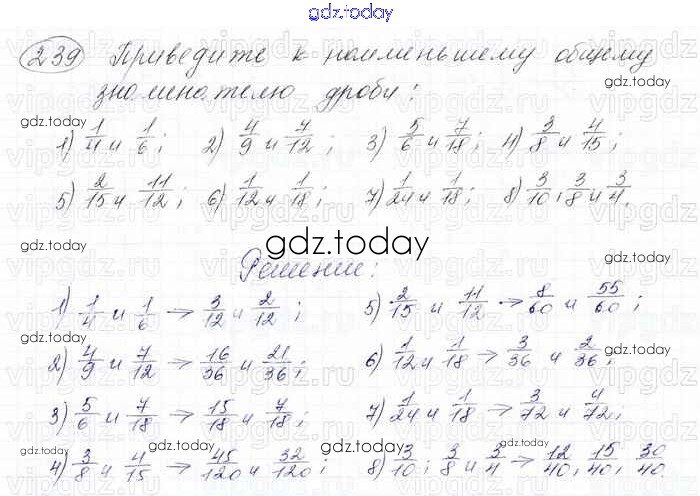 gdz.today
239 Приведите к наименьшему общему
знаменателю дроби:
gdz.today
1) 1/4 и 1/6; 2) 4/9 и 7/12; 3) 5/6 и 7/18; 4) 3/8 и 4/15;
5) 2/15 и 11/12; 6) 1/12 и 1/18; 7) 1/24 и 1/18; 8) 3/10, 3/8 и 3/4.
gdz.today
Решение:
1) 1/4 и 1/6 → 3/12 и 2/12; 5) 2/15 и 11/12 → 8/60 и 55/60;
2) 4/9 и 7/12 → 16/36 и 21/36; 6) 1/12 и 1/18 → 3/36 и 2/36;
3) 5/6 и 7/18 → 15/18 и 7/18; 7) 1/24 и 1/18 → 3/72 и 4/72;
4) 3/8 и 4/15 → 45/120 и 32/120; 8) 3/10; 3/8 и 3/4 → 12/40, 15/40, 30/40.